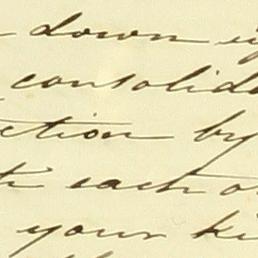 down
consolid
ction by
each o
your ki